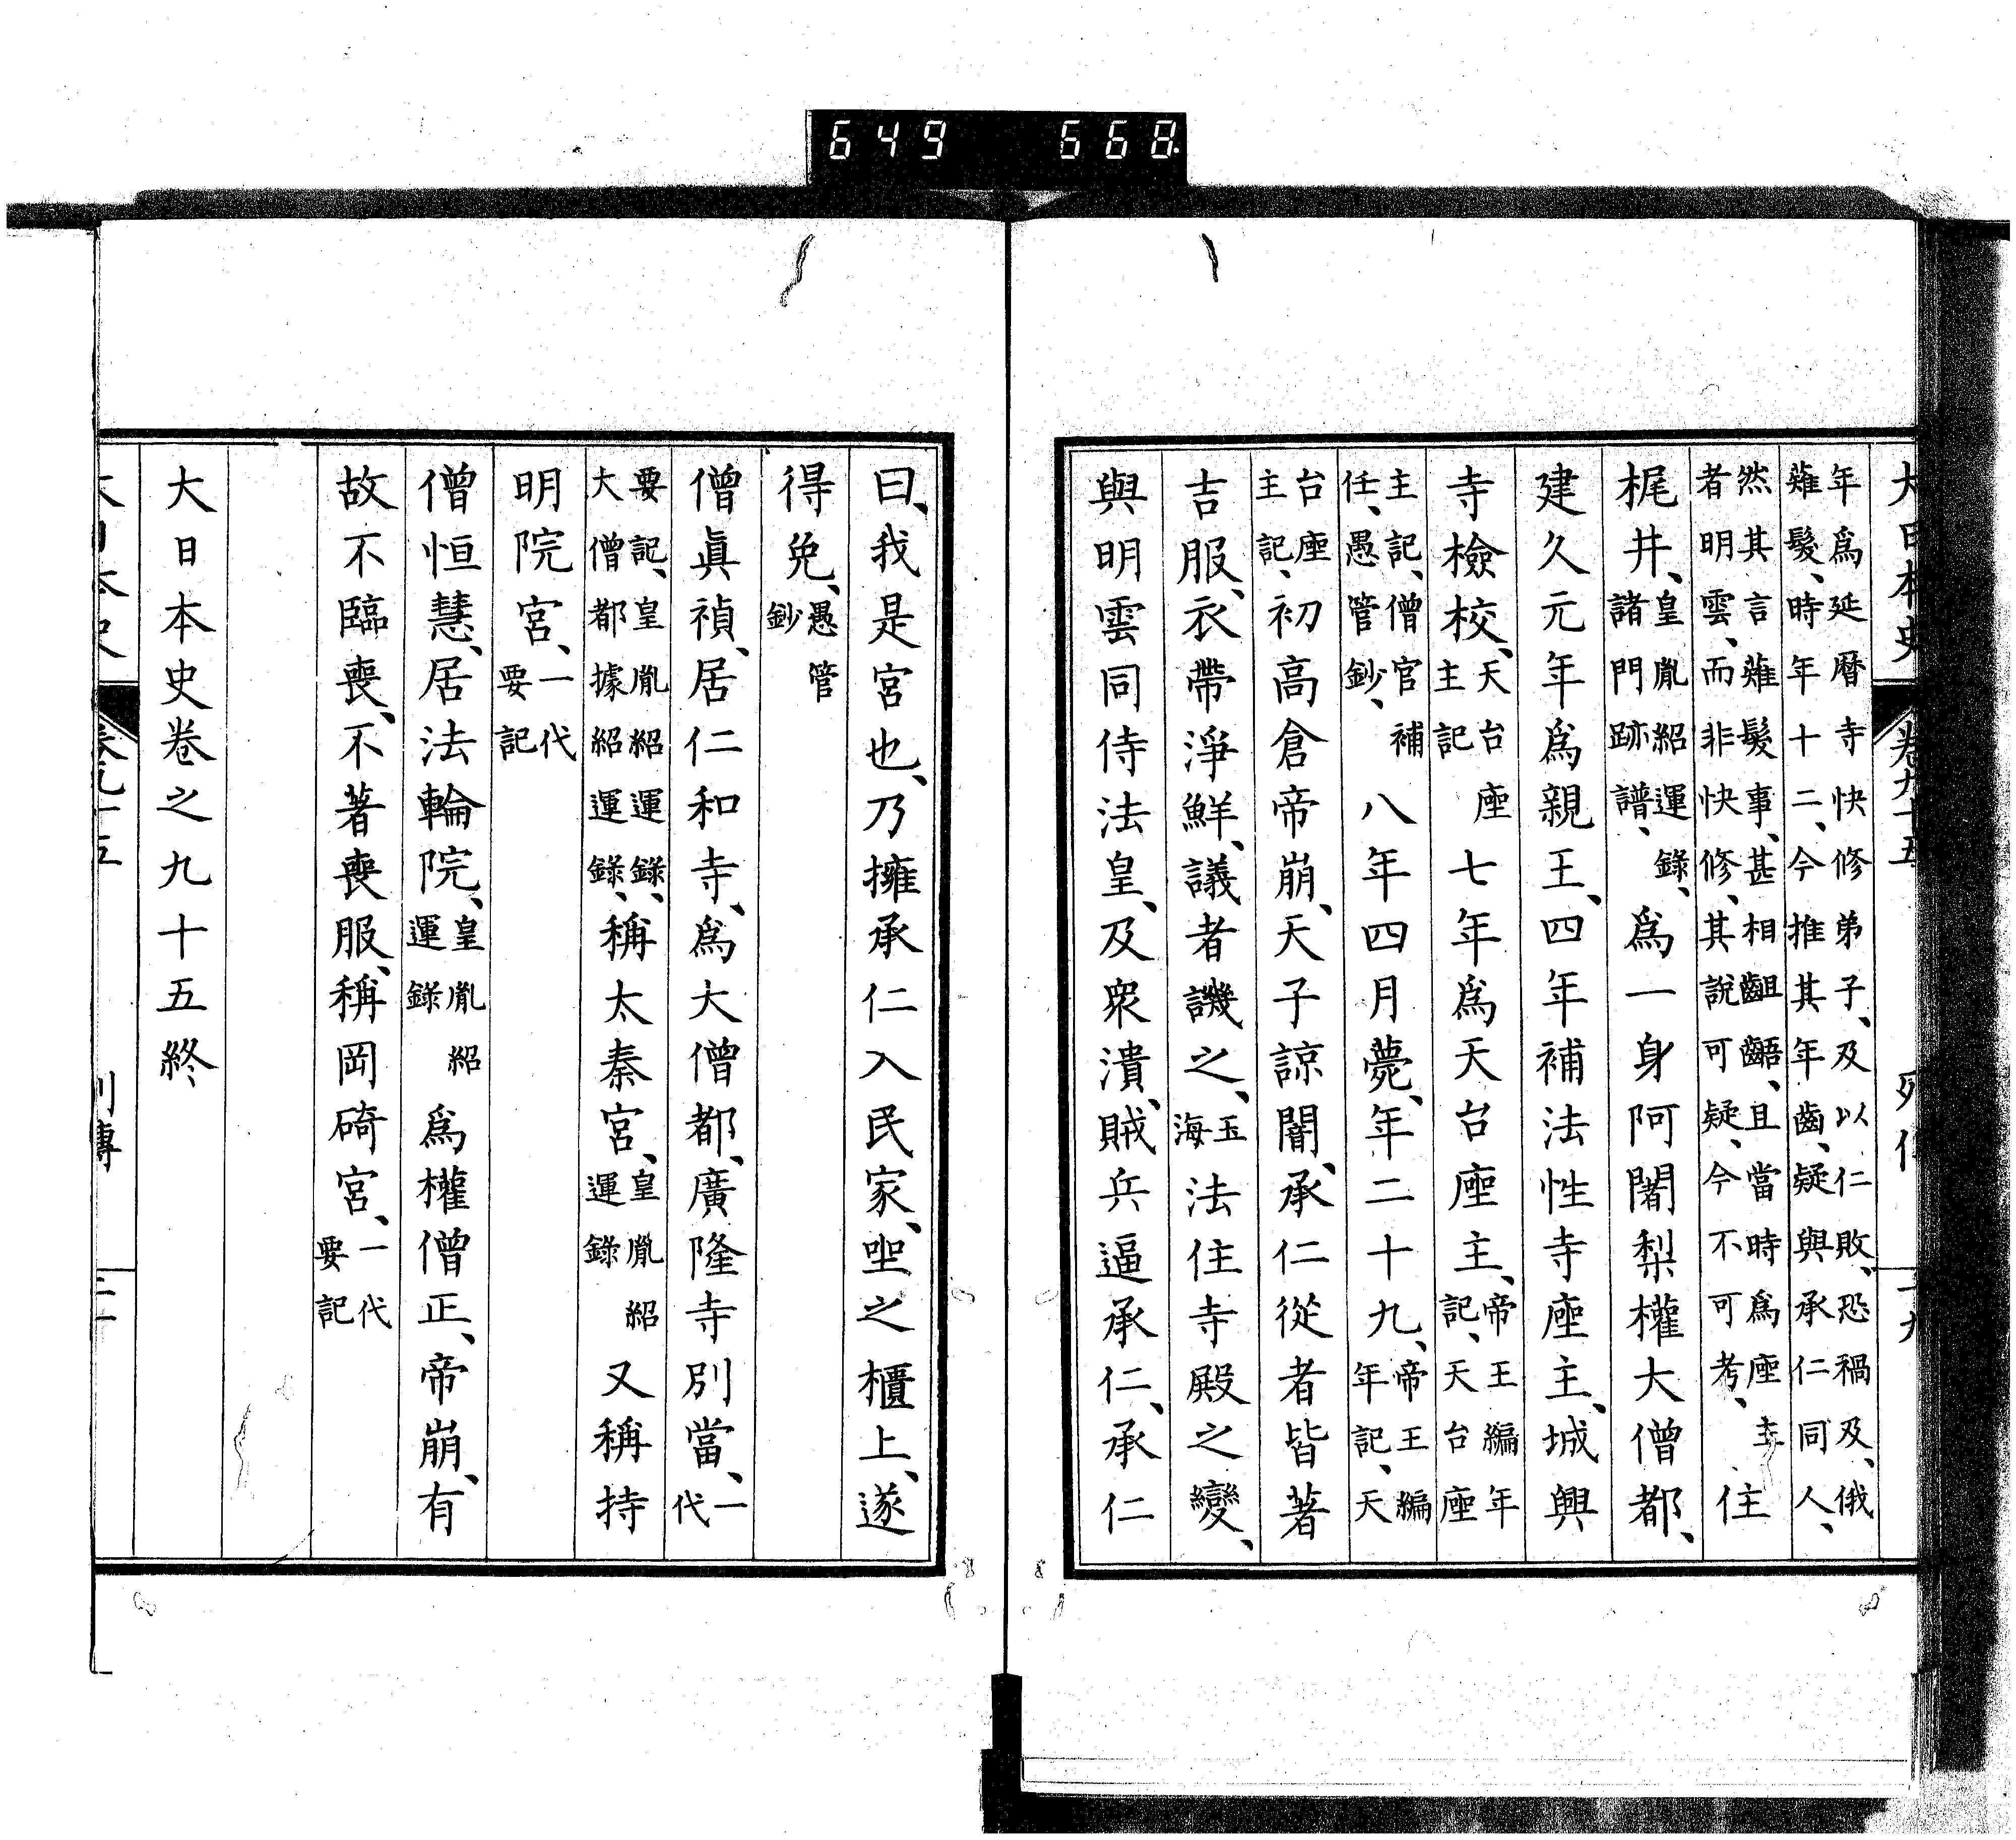 649 668
大日本史 卷九十五 列傳 二十九
年爲延曆寺快修弟子、及以仁敗、恐禍及、俄薙髮、時年十二、今推其年齒、疑與承仁同人、
然其言薙髮事、甚相齟齬、且當時爲座主者明雲、而非快修、其說可疑、今不可考、住
梶井、皇胤紹運錄、諸門跡譜、爲一身阿闍梨權大僧都、
建久元年爲親王、四年補法性寺座主、城興
寺檢校、天台座主記七年爲天台座主、帝王編年記、天台座
主記、僧官補任、愚管鈔、八年四月薨、年二十九、帝王編年記、天
台座主記、初高倉帝崩、天子諒闇、承仁從者皆著
吉服、衣帶淨鮮、議者譏之、玉海法住寺殿之變、
與明雲同侍法皇、及衆潰、賊兵逼承仁、承仁
曰、我是宮也、乃擁承仁入民家、坐之櫃上、遂
得免、愚管鈔
僧眞禎、居仁和寺、爲大僧都、廣隆寺別當、一代
要記、皇胤紹運錄、大僧都據紹運錄、稱太秦宮、皇胤紹運錄又稱持
明院宮、一代要記
僧恒慧、居法輪院、皇胤紹運錄爲權僧正、帝崩、有
故不臨喪、不著喪服、稱岡碕宮、一代要記
大日本史卷之九十五終
大日本史 卷九十五 列傳 三十